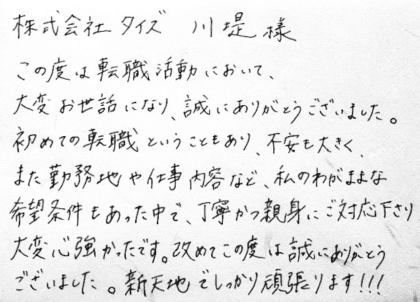 株式会社タイズ 川堤様
この度は転職活動において、
大変お世話になり、誠にありがとうございました。
初めての転職ということもあり、不安も大きく、
また勤務地や仕事内容など、私のわがままな
希望条件もあった中で、丁寧かつ親身にご対応下さり
大変心強かったです。改めてこの度は誠にありがとう
ございました。新天地でしっかり頑張ります!!!